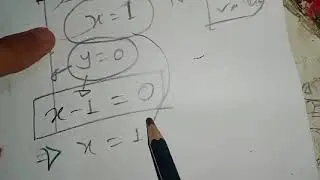 x = 1
y = 0
x - 1 = 0
⇒ x = 1